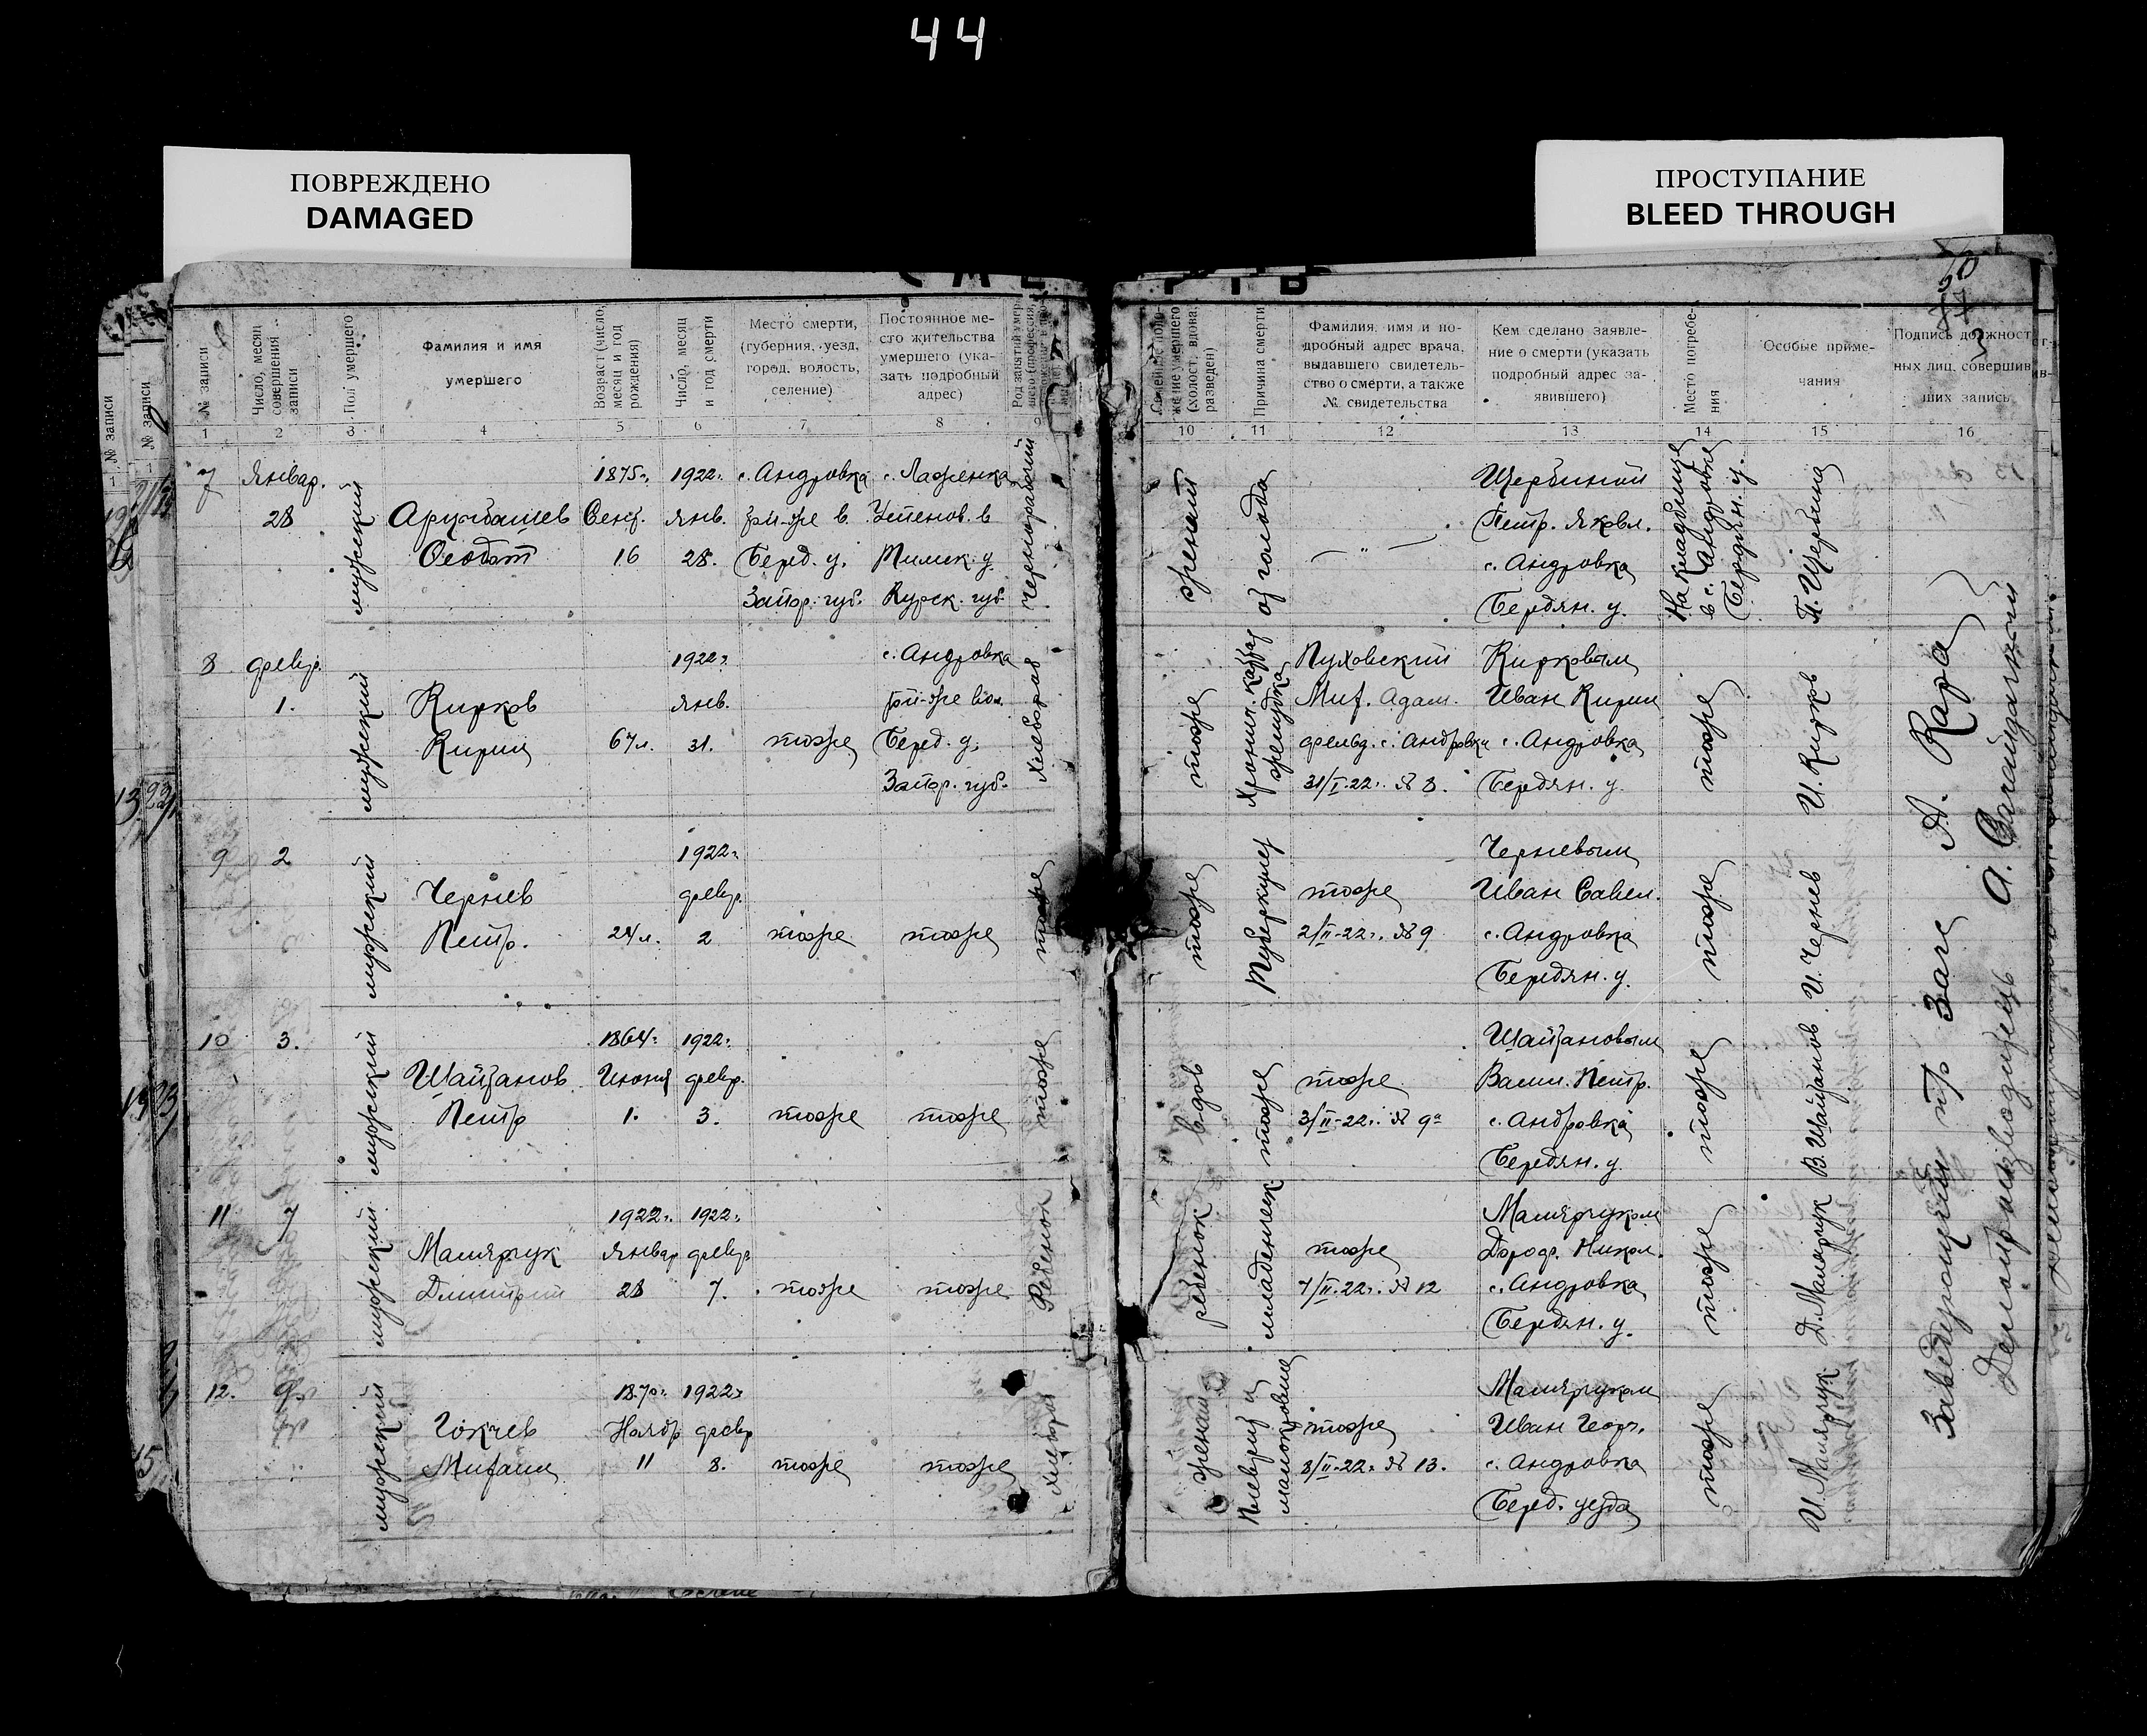 44
ПОВРЕЖДЕНО
DAMAGED
ПРОСТУПАНИЕ
BLEED THROUGH
№ записи
Число, месяц совершения записи
Пол умершего
Фамилия и имя умершего
Возраст (число, месяц и год рождения)
Число, месяц и год смерти
Место смерти, (губерния, уезд, город, волость, селение)
Постоянное место жительства умершего (указать подробный адрес)
Причина смерти
Фамилия, имя и подробный адрес врача, выдавшего свидетельство о смерти, а также № свидетельства
Кем сделано заявление о смерти (указать подробный адрес заявившего)
Место погребения
Особые примечания
Подпись должностных лиц, совершивших запись
1 2 3 4 5 6 7 8 9 10 11 12 13 14 15 16
7 Январ. 28
мужеский
1875 г. Сент. 16
1922 г. Янв. 28.
с. Андровка
Беред. у.
Запор. губ.
Курск. губ.
Чернорабочий
женат
от голода
— " —
Щербиной
Петр. Яковл.
с. Андровка
Бердян. у.
На кладбище
в с. Андровке
Бердян. у.
П. Щербина
8 февр. 1.
мужеский
Кирков
67 л.
1922 г. Янв. 31.
тоже
с. Андровка
Беред. у.
Запор. губ.
Хлебораб
тоже
Пуховский
фельд. с. Андровки
31/I-22 г. № 8.
Кирковым
с. Андровка
Бердян. у.
тоже
И. Кирков
9 2
мужеский
Чернев
Петр.
24 л.
1922 г. февр. 2
тоже
тоже
тоже
тоже
Туберкулез
тоже
2/II-22 г. № 9
Черневым
Иван Савел.
с. Андровка
Бердян. у.
тоже
И. Чернев
10 3.
мужеский
Шайтанов
Петр
1864 г. Июня 1.
1922 г. февр. 3.
тоже
тоже
тоже
вдов
тоже
тоже
3/II-22 г. № 9а
Шайтановым
Васил. Петр.
с. Андровка
Бердян. у.
тоже
В. Шайтанов
11 7
мужеский
Малярчук
Дмитрий
1922 г. Январ 28
1922 г. февр. 7.
тоже
тоже
Ребенок
ребенок
младенчек
тоже
7/II-22 г. № 12
Малярчуком
Дороф. Никол.
с. Андровка
Бердян. у.
тоже
Д. Малярчук
12. 9
мужеский
Гокчев
Михаил
1870 г. Ноябр 11
1922 г. февр 8.
тоже
тоже
женат
Плеврит и
малокровие
тоже
8/II-22 г. № 13.
Малярчуком
Иван Георг.
с. Андровка
Беред. уезда
тоже
И. Малярчук
Заведующий п/о Загс Д. Кара
Делопроизводитель